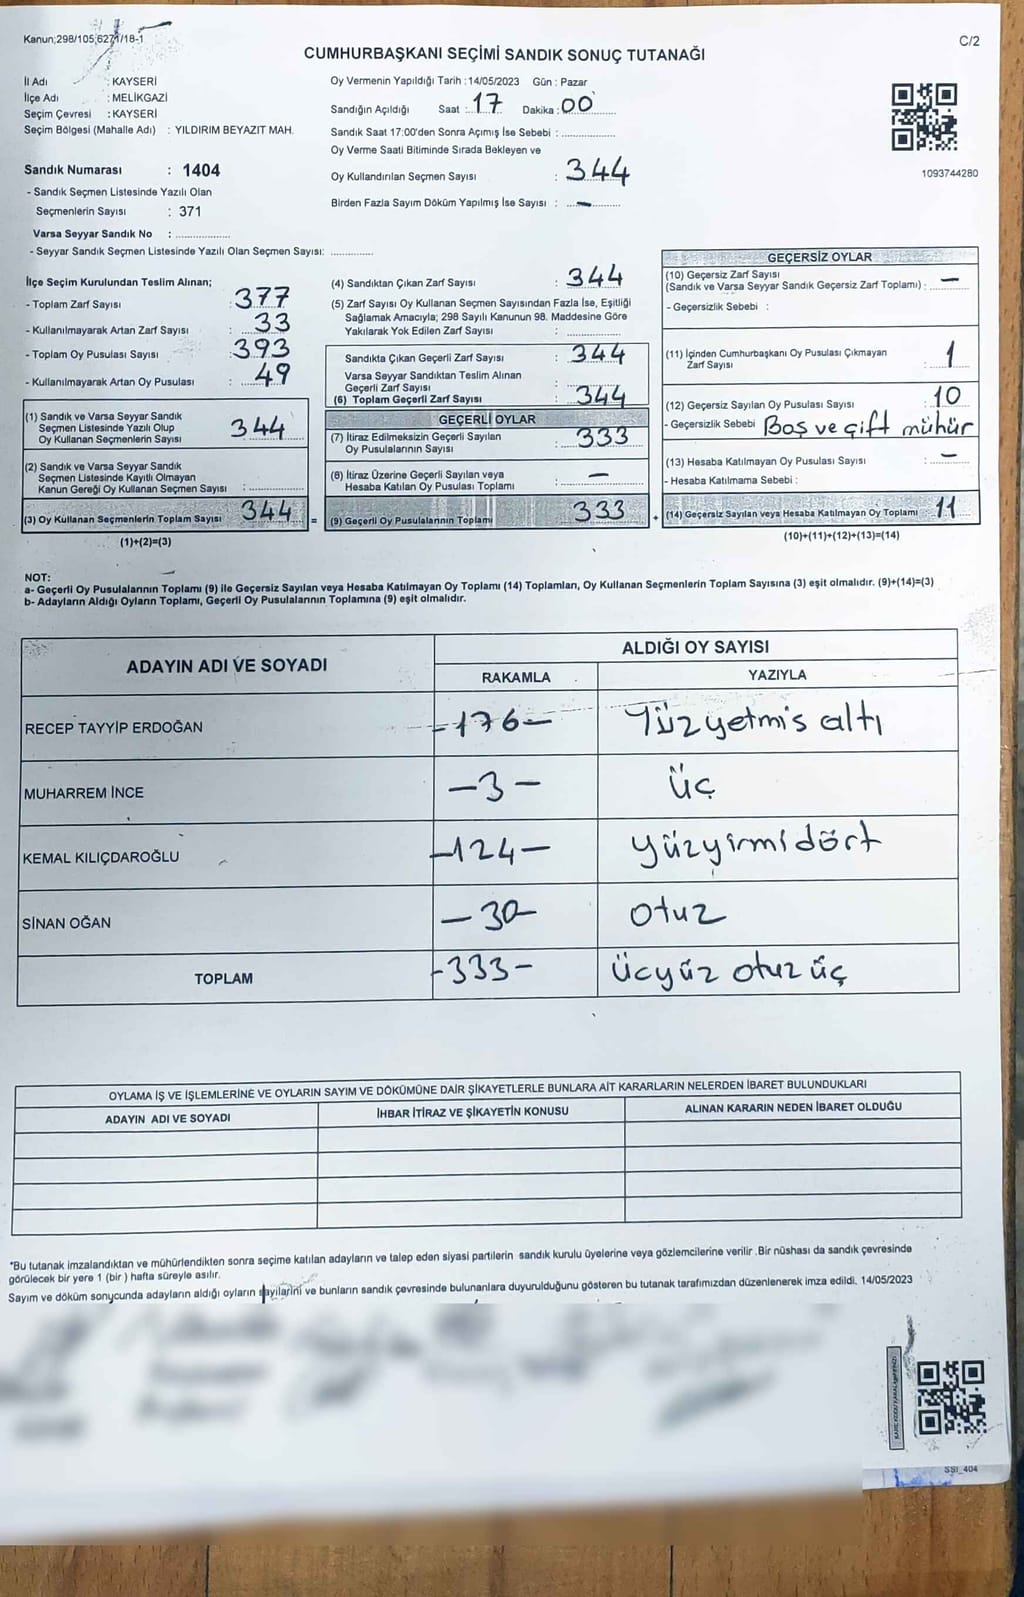 Kanun;298/105;6271/18-1
C/2
CUMHURBAŞKANI SEÇİMİ SANDIK SONUÇ TUTANAĞI
İl Adı : KAYSERİ
İlçe Adı : MELİKGAZİ
Seçim Çevresi : KAYSERİ
Seçim Bölgesi (Mahalle Adı) : YILDIRIM BEYAZIT MAH.
Sandık Numarası : 1404
- Sandık Seçmen Listesinde Yazılı Olan
Seçmenlerin Sayısı : 371
Varsa Seyyar Sandık No :
- Seyyar Sandık Seçmen Listesinde Yazılı Olan Seçmen Sayısı:
Oy Vermenin Yapıldığı Tarih : 14/05/2023 Gün : Pazar
Sandığın Açıldığı Saat : 17 Dakika : 00
Sandık Saat 17:00'den Sonra Açımış İse Sebebi :
Oy Verme Saati Bitiminde Sırada Bekleyen ve
Oy Kullandırılan Seçmen Sayısı : 344
Birden Fazla Sayım Döküm Yapılmış İse Sayısı : —
1093744280
İlçe Seçim Kurulundan Teslim Alınan;
- Toplam Zarf Sayısı : 377
- Kullanılmayarak Artan Zarf Sayısı : 33
- Toplam Oy Pusulası Sayısı : 393
- Kullanılmayarak Artan Oy Pusulası : 49
(1) Sandık ve Varsa Seyyar Sandık
Seçmen Listesinde Yazılı Olup
Oy Kullanan Seçmenlerin Sayısı 344
(2) Sandık ve Varsa Seyyar Sandık
Seçmen Listesinde Kayıtlı Olmayan
Kanun Gereği Oy Kullanan Seçmen Sayısı :
(3) Oy Kullanan Seçmenlerin Toplam Sayısı 344
(1)+(2)=(3)
(4) Sandıktan Çıkan Zarf Sayısı : 344
(5) Zarf Sayısı Oy Kullanan Seçmen Sayısından Fazla İse, Eşitliği
Sağlamak Amacıyla; 298 Sayılı Kanunun 98. Maddesine Göre
Yakılarak Yok Edilen Zarf Sayısı :
Sandıkta Çıkan Geçerli Zarf Sayısı : 344
Varsa Seyyar Sandıktan Teslim Alınan
Geçerli Zarf Sayısı :
(6) Toplam Geçerli Zarf Sayısı : 344
GEÇERLİ OYLAR
(7) İtiraz Edilmeksizin Geçerli Sayılan
Oy Pusulalarının Sayısı : 333
(8) İtiraz Üzerine Geçerli Sayılan veya
Hesaba Katılan Oy Pusulası Toplamı : —
= (9) Geçerli Oy Pusulalarının Toplamı 333
GEÇERSİZ OYLAR
(10) Geçersiz Zarf Sayısı
(Sandık ve Varsa Seyyar Sandık Geçersiz Zarf Toplamı) : —
- Geçersizlik Sebebi :
(11) İçinden Cumhurbaşkanı Oy Pusulası Çıkmayan
Zarf Sayısı : 1
(12) Geçersiz Sayılan Oy Pusulası Sayısı : 10
- Geçersizlik Sebebi Boş ve çift mühür
(13) Hesaba Katılmayan Oy Pusulası Sayısı : —
- Hesaba Katılmama Sebebi :
+ (14) Geçersiz Sayılan veya Hesaba Katılmayan Oy Toplamı 11
(10)+(11)+(12)+(13)=(14)
NOT:
a- Geçerli Oy Pusulalarının Toplamı (9) ile Geçersiz Sayılan veya Hesaba Katılmayan Oy Toplamı (14) Toplamları, Oy Kullanan Seçmenlerin Toplam Sayısına (3) eşit olmalıdır. (9)+(14)=(3)
b- Adayların Aldığı Oyların Toplamı, Geçerli Oy Pusulalarının Toplamına (9) eşit olmalıdır.
ADAYIN ADI VE SOYADI
ALDIĞI OY SAYISI
RAKAMLA YAZIYLA
RECEP TAYYİP ERDOĞAN -176- Yüzyetmis altı
MUHARREM İNCE -3- üç
KEMAL KILIÇDAROĞLU -124- yüzyirmidört
SİNAN OĞAN -30- otuz
TOPLAM -333- ücyüz otuz üç
OYLAMA İŞ VE İŞLEMLERİNE VE OYLARIN SAYIM VE DÖKÜMÜNE DAİR ŞİKAYETLERLE BUNLARA AİT KARARLARIN NELERDEN İBARET BULUNDUKLARI
ADAYIN ADI VE SOYADI İHBAR İTİRAZ VE ŞİKAYETİN KONUSU ALINAN KARARIN NEDEN İBARET OLDUĞU
*Bu tutanak imzalandıktan ve mühürlendikten sonra seçime katılan adayların ve talep eden siyasi partilerin sandık kurulu üyelerine veya gözlemcilerine verilir .Bir nüshası da sandık çevresinde
görülecek bir yere 1 (bir ) hafta süreyle asılır.
Sayım ve döküm sonucunda adayların aldığı oyların sayılarını ve bunların sandık çevresinde bulunanlara duyurulduğunu gösteren bu tutanak tarafımızdan düzenlenerek imza edildi. 14/05/2023
SSI_404